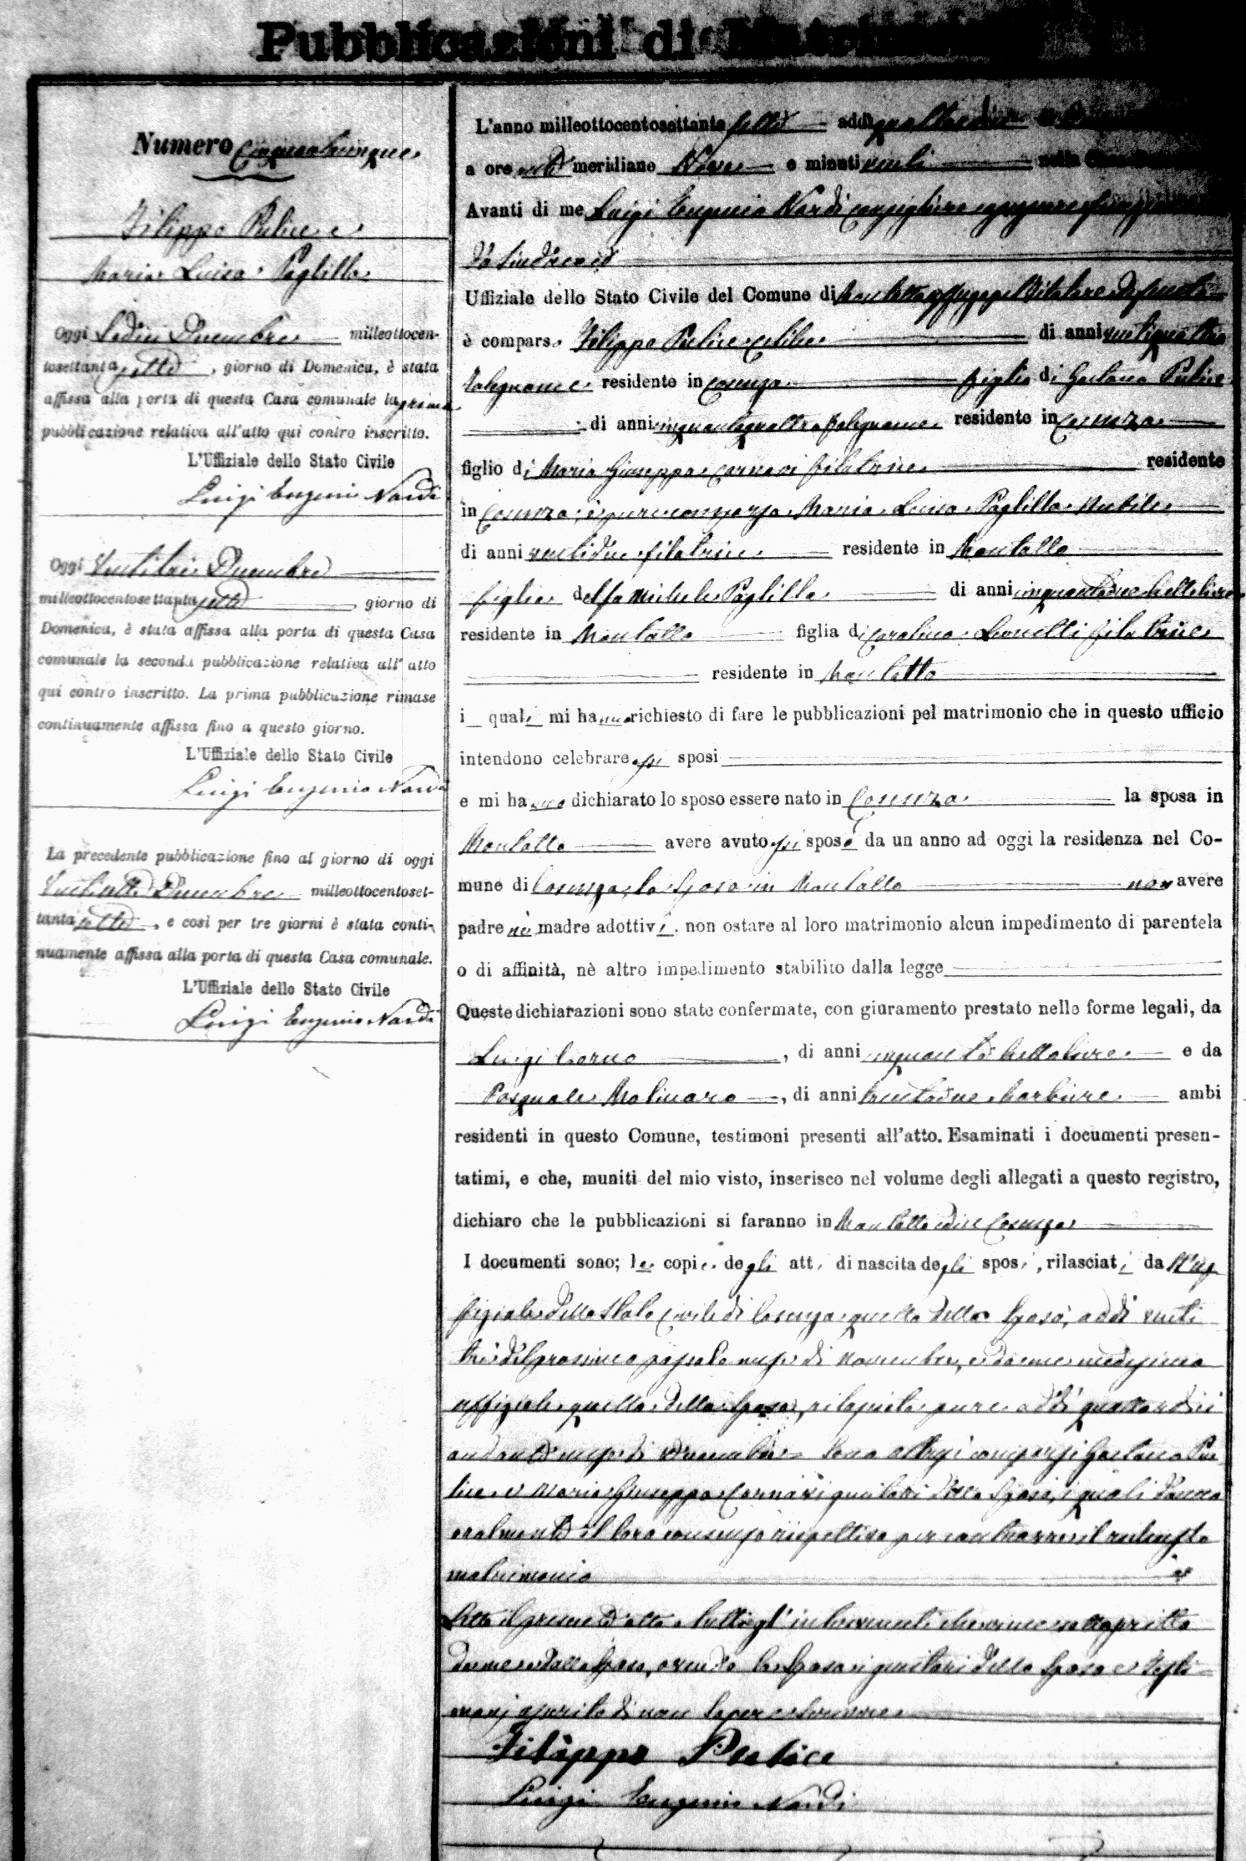 Pubblicazioni di
Numero Cinquantacinque
Filippo Pulice e
Maria Luisa Paglilla
Oggi Sedici Dicembre milleottocen-
tosettanta sette, giorno di Domenica, è stata
affissa alla porta di questa Casa comunale la prima
pubblicazione relativa all'atto qui contro inscritto.
L'Uffiziale dello Stato Civile
Luigi Eugenio Nardi
Oggi Ventitrè Dicembre
milleottocentosettanta sette giorno di
Domenica, è stata affissa alla porta di questa Casa
comunale la seconda pubblicazione relativa all' atto
qui contro inscritto. La prima pubblicazione rimase
continuamente affissa fino a questo giorno.
L'Uffiziale dello Stato Civile
Luigi Eugenio Nardi
La precedente pubblicazione fino al giorno di oggi
Dicembre milleottocentoset-
tanta sette, e così per tre giorni è stata conti-
nuamente affissa alla porta di questa Casa comunale.
L'Uffiziale dello Stato Civile
Luigi Eugenio Nardi
L'anno milleottocentosettanta sette addì quattordici
a ore anti meridiane Nove e minuti venti nella Casa
Avanti di me Luigi Eugenio Nardi consigliere
da Sindaco ed
Uffiziale dello Stato Civile del Comune di Montalto Uffugo pel titolare
è compars. Filippo Pulice celibe di anni ventiquattro
falegname residente in Cosenza figlio di Gaetano Pulice
di anni cinquantaquattro falegname residente in Cosenza
figlio di Maria Giuseppa filatrice residente
in Cosenza, è pure comparsa Maria Luisa Paglilla nubile
di anni ventidue filatrice residente in Montalto
figlia del fu Michele Paglilla di anni
residente in Montalto figlia di Carolina Leonetti filatrice
residente in Montalto
i quali mi hanno richiesto di fare le pubblicazioni pel matrimonio che in questo ufficio
intendono celebrare essi sposi
e mi hanno dichiarato lo sposo essere nato in Cosenza la sposa in
Montalto avere avuto gli sposi da un anno ad oggi la residenza nel Co-
mune di Cosenza, la sposa in Montalto non avere
padre nè madre adottivi, non ostare al loro matrimonio alcun impedimento di parentela
o di affinità, nè altro impedimento stabilito dalla legge
Queste dichiarazioni sono state confermate, con giuramento prestato nelle forme legali, da
Luigi, di anni cinquanta e da
Pasquale Molinaro, di anni trentadue barbiere ambi
residenti in questo Comune, testimoni presenti all'atto. Esaminati i documenti presen-
tatimi, e che, muniti del mio visto, inserisco nel volume degli allegati a questo registro,
dichiaro che le pubblicazioni si faranno in Montalto ed in Cosenza
I documenti sono; le copie degli atti di nascita degli sposi, rilasciati da l'uf
fiziale dello Stato Civile di Cosenza quella dello sposo, addì venti
trè del prossimo passato mese di Novembre, e da me medesimo
uffiziale quella della sposa, rilasciata pure addì quattordici
andante mese di Dicembre. Sono altresì comparsi Gaetano Pu
lice e Maria Giuseppa genitori dello sposo, i quali danno
oralmente il loro consenso rispettivo per contrarre il richiesto
matrimonio
Letto il presente atto a tutti gl'intervenuti che viene sottoscritto
da me e dallo sposo, avendo la sposa i genitori dello sposo e testi
monj asserito di non sapere scrivere
Filippo Pulice
Luigi Eugenio Nardi